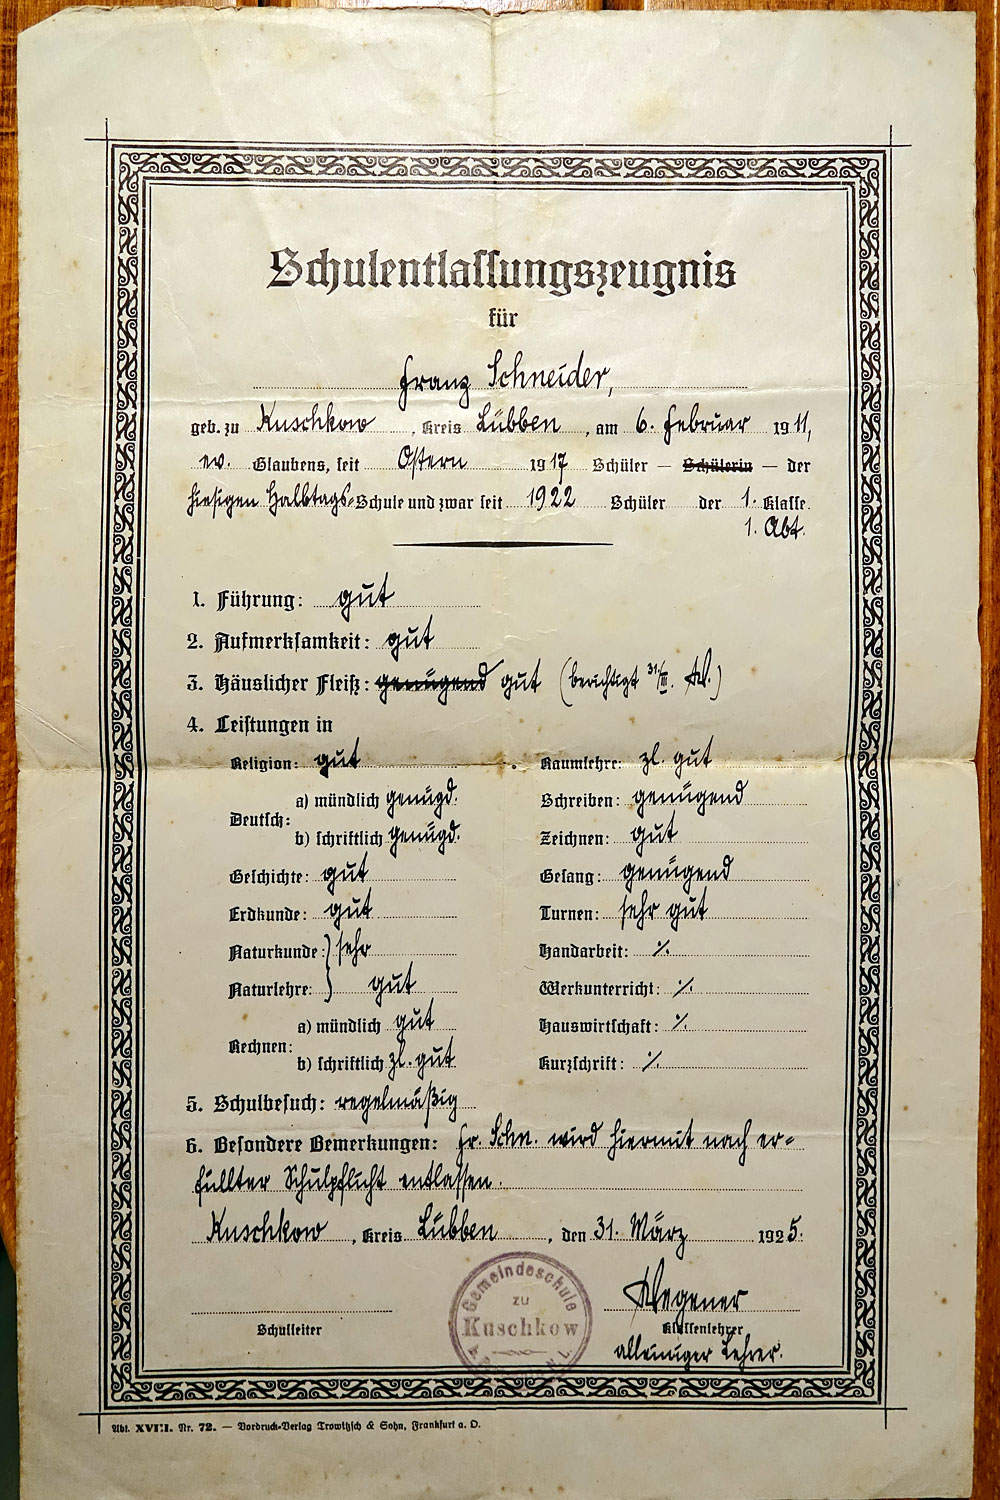 Schulentlassungszeugnis
für
Franz Schneider,
geb. zu Kuschkow, Kreis Lübben, am 6. Februar 1911,
ev. Glaubens, seit Ostern 1917 Schüler — Schülerin — der
hiesigen Halbtags-Schule und zwar seit 1922 Schüler der 1. Klasse.
1. Abt.
1. Führung: gut
2. Aufmerksamkeit: gut
3. Häuslicher Fleiß: genügend gut (berichtigt 31/III. W.)
4. Leistungen in
Religion: gut
Deutsch: a) mündlich genügd.
b) schriftlich genügd.
Geschichte: gut
Erdkunde: gut
Naturkunde: } sehr
Naturlehre: } gut
Rechnen: a) mündlich gut
b) schriftlich zl. gut
Raumlehre: zl. gut
Schreiben: genügend
Zeichnen: gut
Gesang: genügend
Turnen: sehr gut
Handarbeit: ⁒
Werkunterricht: ⁒
Hauswirtschaft: ⁒
Kurzschrift: ⁒
5. Schulbesuch: regelmäßig
6. Besondere Bemerkungen: Fr. Schn. wird hiermit nach er-
füllter Schulpflicht entlassen.
Kuschkow, Kreis Lübben, den 31. März 1925.
Gemeindeschule
zu
Kuschkow
Wegener
Schulleiter
Klassenlehrer
alleiniger Lehrer.
Abt. XVIII. Nr. 72. — Vordruck-Verlag Trowitzsch & Sohn, Frankfurt a. O.